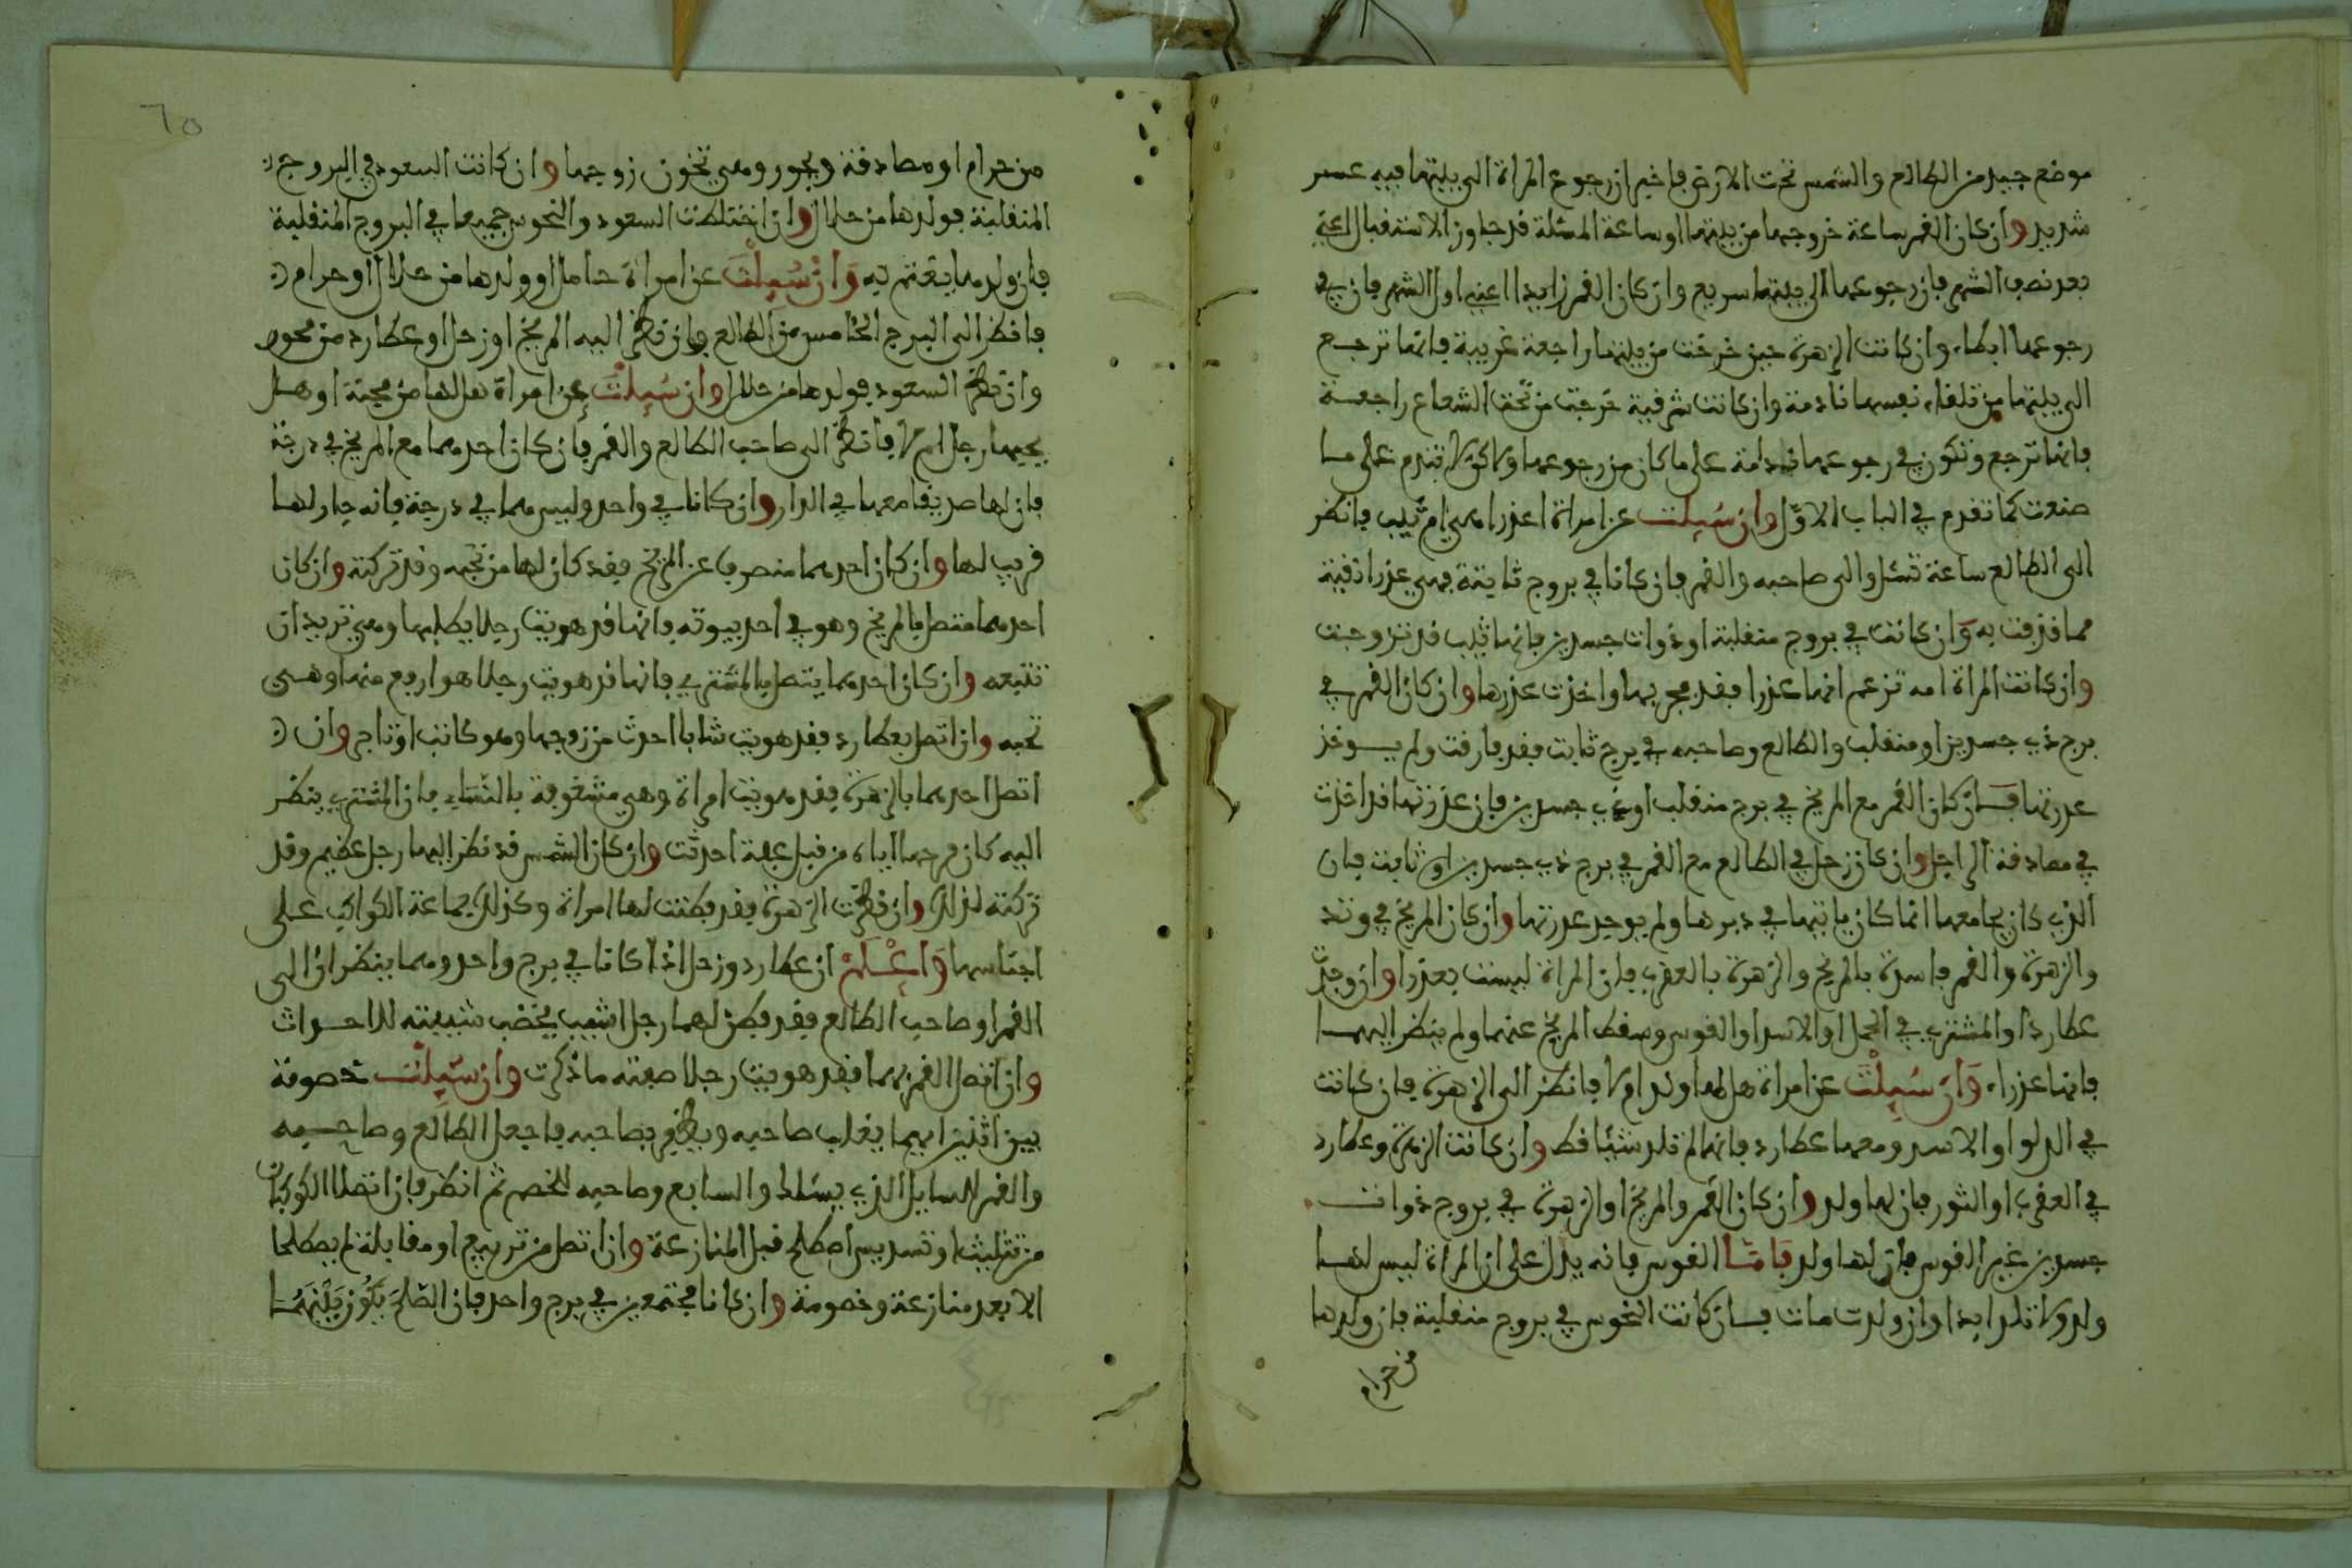 موضع جيد من الطالع والشمس تحت الارض فاخبر ان رجوع المراة الى بيتها فيه عسر
شديد وان كان القمر ساعة خروجها من بيتها او ساعة المسئلة قد جاوز الاستقبال اعني
بعد نصف الشهر فان رجوعها الى بيتها سريع وان كان القمر زايدا اعني اول الشهر فان في
رجوعها ابطاء وان كانت الزهرة حين خرجت من بيتها راجعة غربية فانها ترجع
الى بيتها من تلقاء نفسها نادمة وان كانت شرقية خرجت من تحت الشعاع راجعة
فانها ترجع وتكون في رجوعها ندامة على ما كان من رجوعها ولاكن لا تندم على ما
صنعت كما تقدم في الباب الاول وان سيلت عن امراة اعذرا هي ام ثيب فانظر
الى الطالع ساعة تسئل والى صاحبه والقمر فان كانا في بروج ثابتة فهي عذرا نقية
مما قذفت به وان كانت في بروج منقلبة او ذوات جسدين فانها ثيب قد تزوجت
وان كانت المراة امه تزعم انها عذرا فقد فجر بها واخذت عذرها وان كان القمر في
برج ذي جسدين او منقلب والطالع وصاحبه في برج ثابت فقد فارقت ولم يوخذ
عذرتها فان كان القمر مع المريخ في برج منقلب او ذي جسدين فان عذرتها قد اخذت
في مصادفة الراجل وان كان زحل في الطالع مع القمر في برج ذي جسدين او ثابت فان
الذي كان يجامعها انما كان ياتيها في دبرها ولم يوخذ عذرتها وان كان المريخ في وتد
والزهرة والقمر فاسدة بالمريخ والزهرة بالعقرب فان المراة ليست بعذرا وان وجدت
عطارد او المشتري في الحمل او الاسد او القوس وسقط المريخ عنهما ولم ينظر اليهما
فانها عذراء وان سيلت عن امراة هل لها ولد ام لا فانظر الى الزهرة فان كانت
في الدلو او الاسد ومعها عطارد فانها لم تلد شيئا قط وان كانت الزهرة وعطارد
في العقرب او الثور فان لها ولد وان كان القمر والمريخ او الزهرة في بروج ذوات
جسدين غير القوس فان لها ولد فاما القوس فانه يدل على ان المراة ليس لها
ولد ولا تلد ابدا وان ولدت مات فان كانت النحوس في بروج منقلبة فان ولدها
من حرام
٦٥
من حرام او مصادقة وفجور وهي تخون زوجها وان كانت السعود في البروج
المنقلبة فولدها من حلال وان اختلطت السعود والنحوس جميعا في البروج المنقلبة
فان ولدها يتهم به وان سيلت عن امراة حامل او ولدها من حلال او حرام
فانظر الى البرج الخامس من الطالع فان نظر اليه المريخ او زحل او عطارد منحوس
وان نظر السعود فولدها من حلال وان سيلت عن امراة هل لها من محبة او هل
يحبها رجل ام لا فانظر الى صاحب الطالع والقمر فان كان احدهما مع المريخ في درجة
فان لها صديقا معها في الدار وان كانا في واحد وليس هما في درجة فانه جار لها
قريب لها وان كان احدهما منصرفا عن المريخ فقد كان لها من تحبه وقد تركته وان كان
احدهما متصل بالمريخ وهو في احد بيوته فانها قد هويت رجلا يطلبها وهي تريد ان
تتبعه وان كان احدهما يتصل بالمشتري فانها قد هويت رجلا هو ارفع منها وهي
تحبه وان اتصل بعطارد فقد هويت شابا احدث من زوجها وهو كاتب او تاجر وان
اتصل احدهما بالزهرة فقد هويت امراة وهي مشغوفة بالنساء فان المشتري ينظر
اليه كان فرحها اياه من قبل عفة احدثت وان كان الشمس قد نظر اليها رجل عظيم وقد
تركته لذلك وان نظرت الزهرة فقد فطنت لها امراة وكذلك جماعة الكواكب على
اجناسها واعلم ان عطارد وزحل اذا كانا في برج واحد وهما ينظران الى
القمر او صاحب الطالع فقد فطن لهما رجل اشيب يخضب شيبته للاحداث
وان اتصل القمر بهما فقد هويت رجلا صفته ما ذكرت وان سيلت خصومة
بين اثنين ايهما يغلب صاحبه ويظفر بصاحبه فاجعل الطالع وصاحبه
والقمر للسايل الذي يسئلك والسابع وصاحبه للخصم ثم انظر فان اتصلا الكوكبان
من تثليث او تسديس اصطلحا قبل المنازعة وان اتصل من تربيع او مقابلة لم يصطلحا
الا بعد منازعة وخصومة وان كانا مجتمعين في برج واحد فان الصلح يكون بينهما